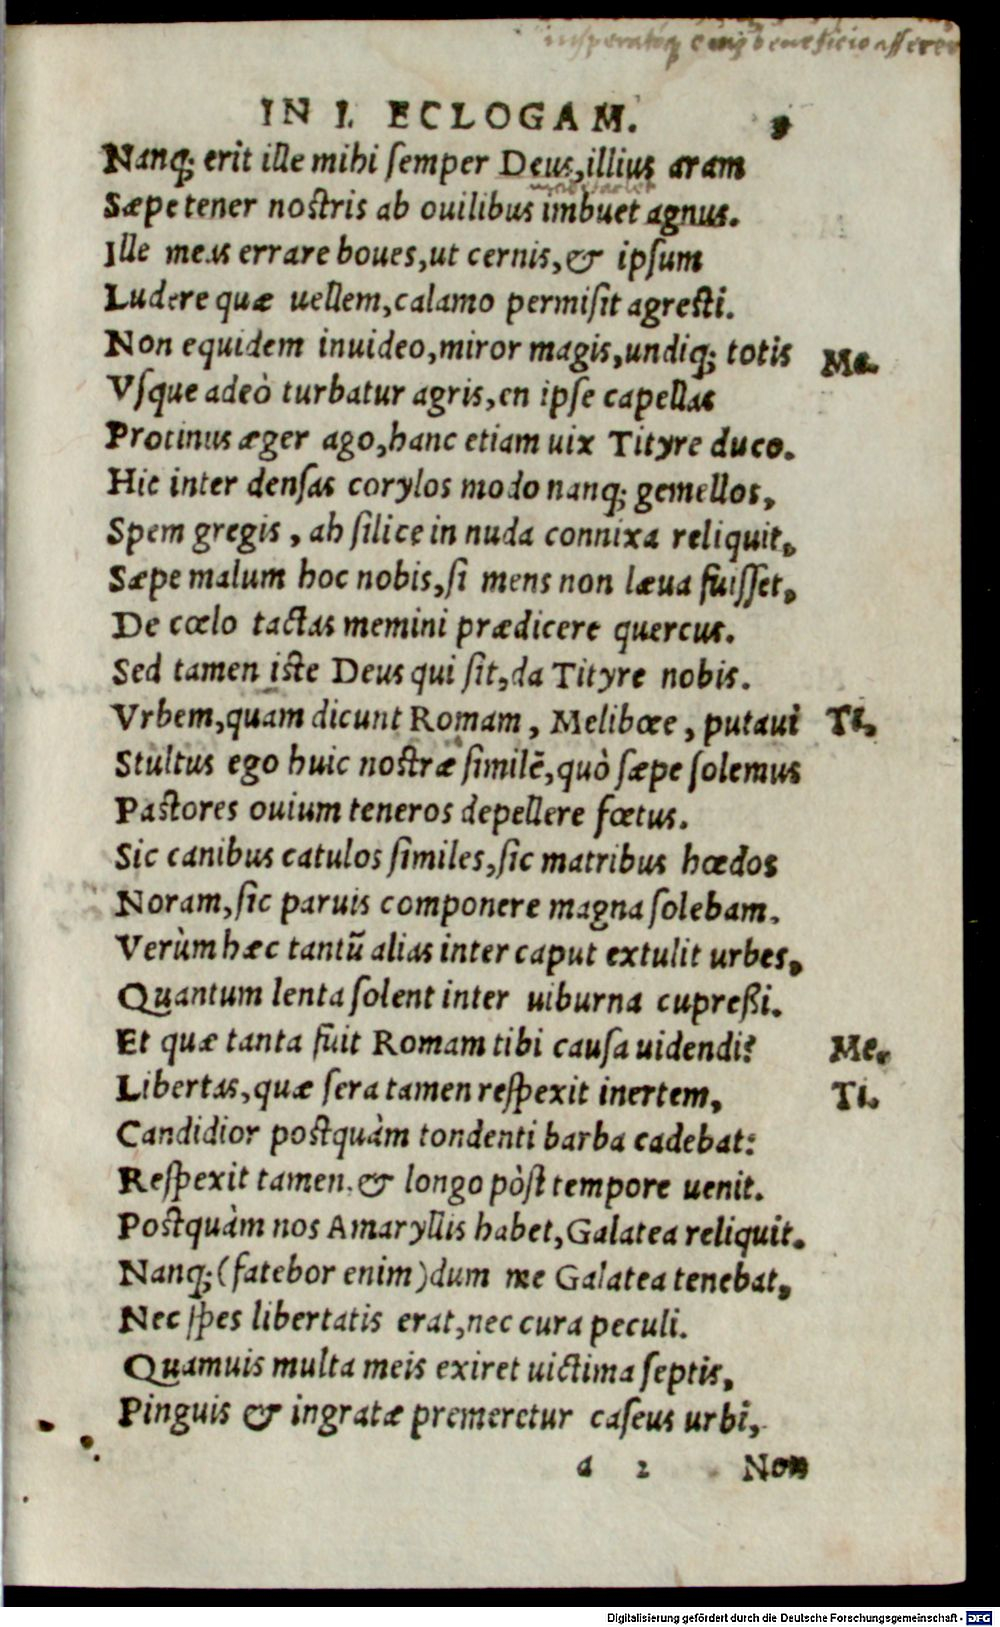 insperatoq; eius beneficio assere
IN I. ECLOGAM. 9
Nanq; erit ille mihi semper Deus, illius aram
Sæpe tener nostris ab ouilibus imbuet agnus.
Ille meas errare boues, ut cernis, & ipsum
Ludere quæ uellem, calamo permisit agresti.
Non equidem inuideo, miror magis, undiq; totis Me.
Vsque adeò turbatur agris, en ipse capellas
Protinus æger ago, hanc etiam uix Tityre duco.
Hic inter densas corylos modo nanq; gemellos,
Spem gregis, ah silice in nuda connixa reliquit,
Sæpe malum hoc nobis, si mens non læua fuisset,
De cœlo tactas memini prædicere quercus.
Sed tamen iste Deus qui sit, da Tityre nobis.
Vrbem, quam dicunt Romam, Melibœe, putaui Ti,
Stultus ego huic nostræ similē, quò sæpe solemus
Pastores ouium teneros depellere fœtus.
Sic canibus catulos similes, sic matribus hœdos
Noram, sic paruis componere magna solebam.
Verùm hæc tantū alias inter caput extulit urbes,
Quantum lenta solent inter uiburna cupreßi.
Et quæ tanta fuit Romam tibi causa uidendi? Me.
Libertas, quæ sera tamen respexit inertem, Ti.
Candidior postquàm tondenti barba cadebat:
Respexit tamen, & longo pòst tempore uenit.
Postquàm nos Amaryllis habet, Galatea reliquit.
Nanq; (fatebor enim) dum me Galatea tenebat,
Nec spes libertatis erat, nec cura peculi.
Quamuis multa meis exiret uictima septis,
Pinguis & ingratæ premeretur caseus urbi,
a 2 Non
Digitalisierung gefördert durch die Deutsche Forschungsgemeinschaft - DFG